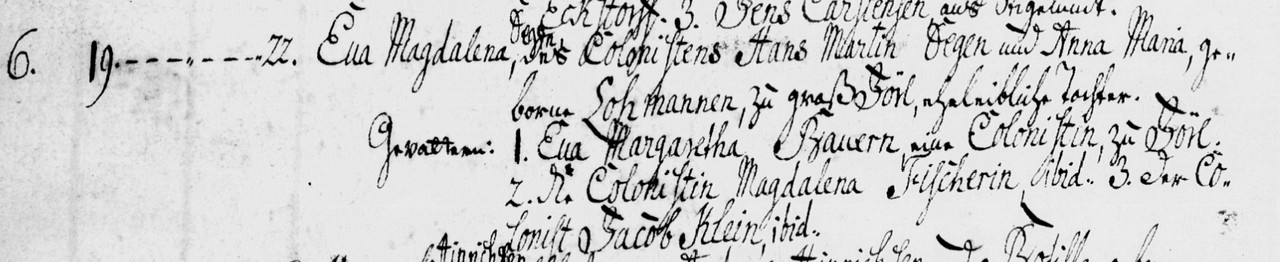 Eckstorff. 3. Jens Carstensen aus
6. 19.--------22. Eva Magdalena, Degen, des Colonistens Hans Martin Degen und Anna Maria, ge-
borne Lohmannen, zu groß Jörl, eheleibliche Tochter.
Gevattern: 1. Eva Margaretha Bauern, eine Colonistin, zu Jörl.
2. die Colonistin Magdalena Fischerin, ibid. 3. der Co-
lonist Jacob Klein, ibid.
Hinrichsen